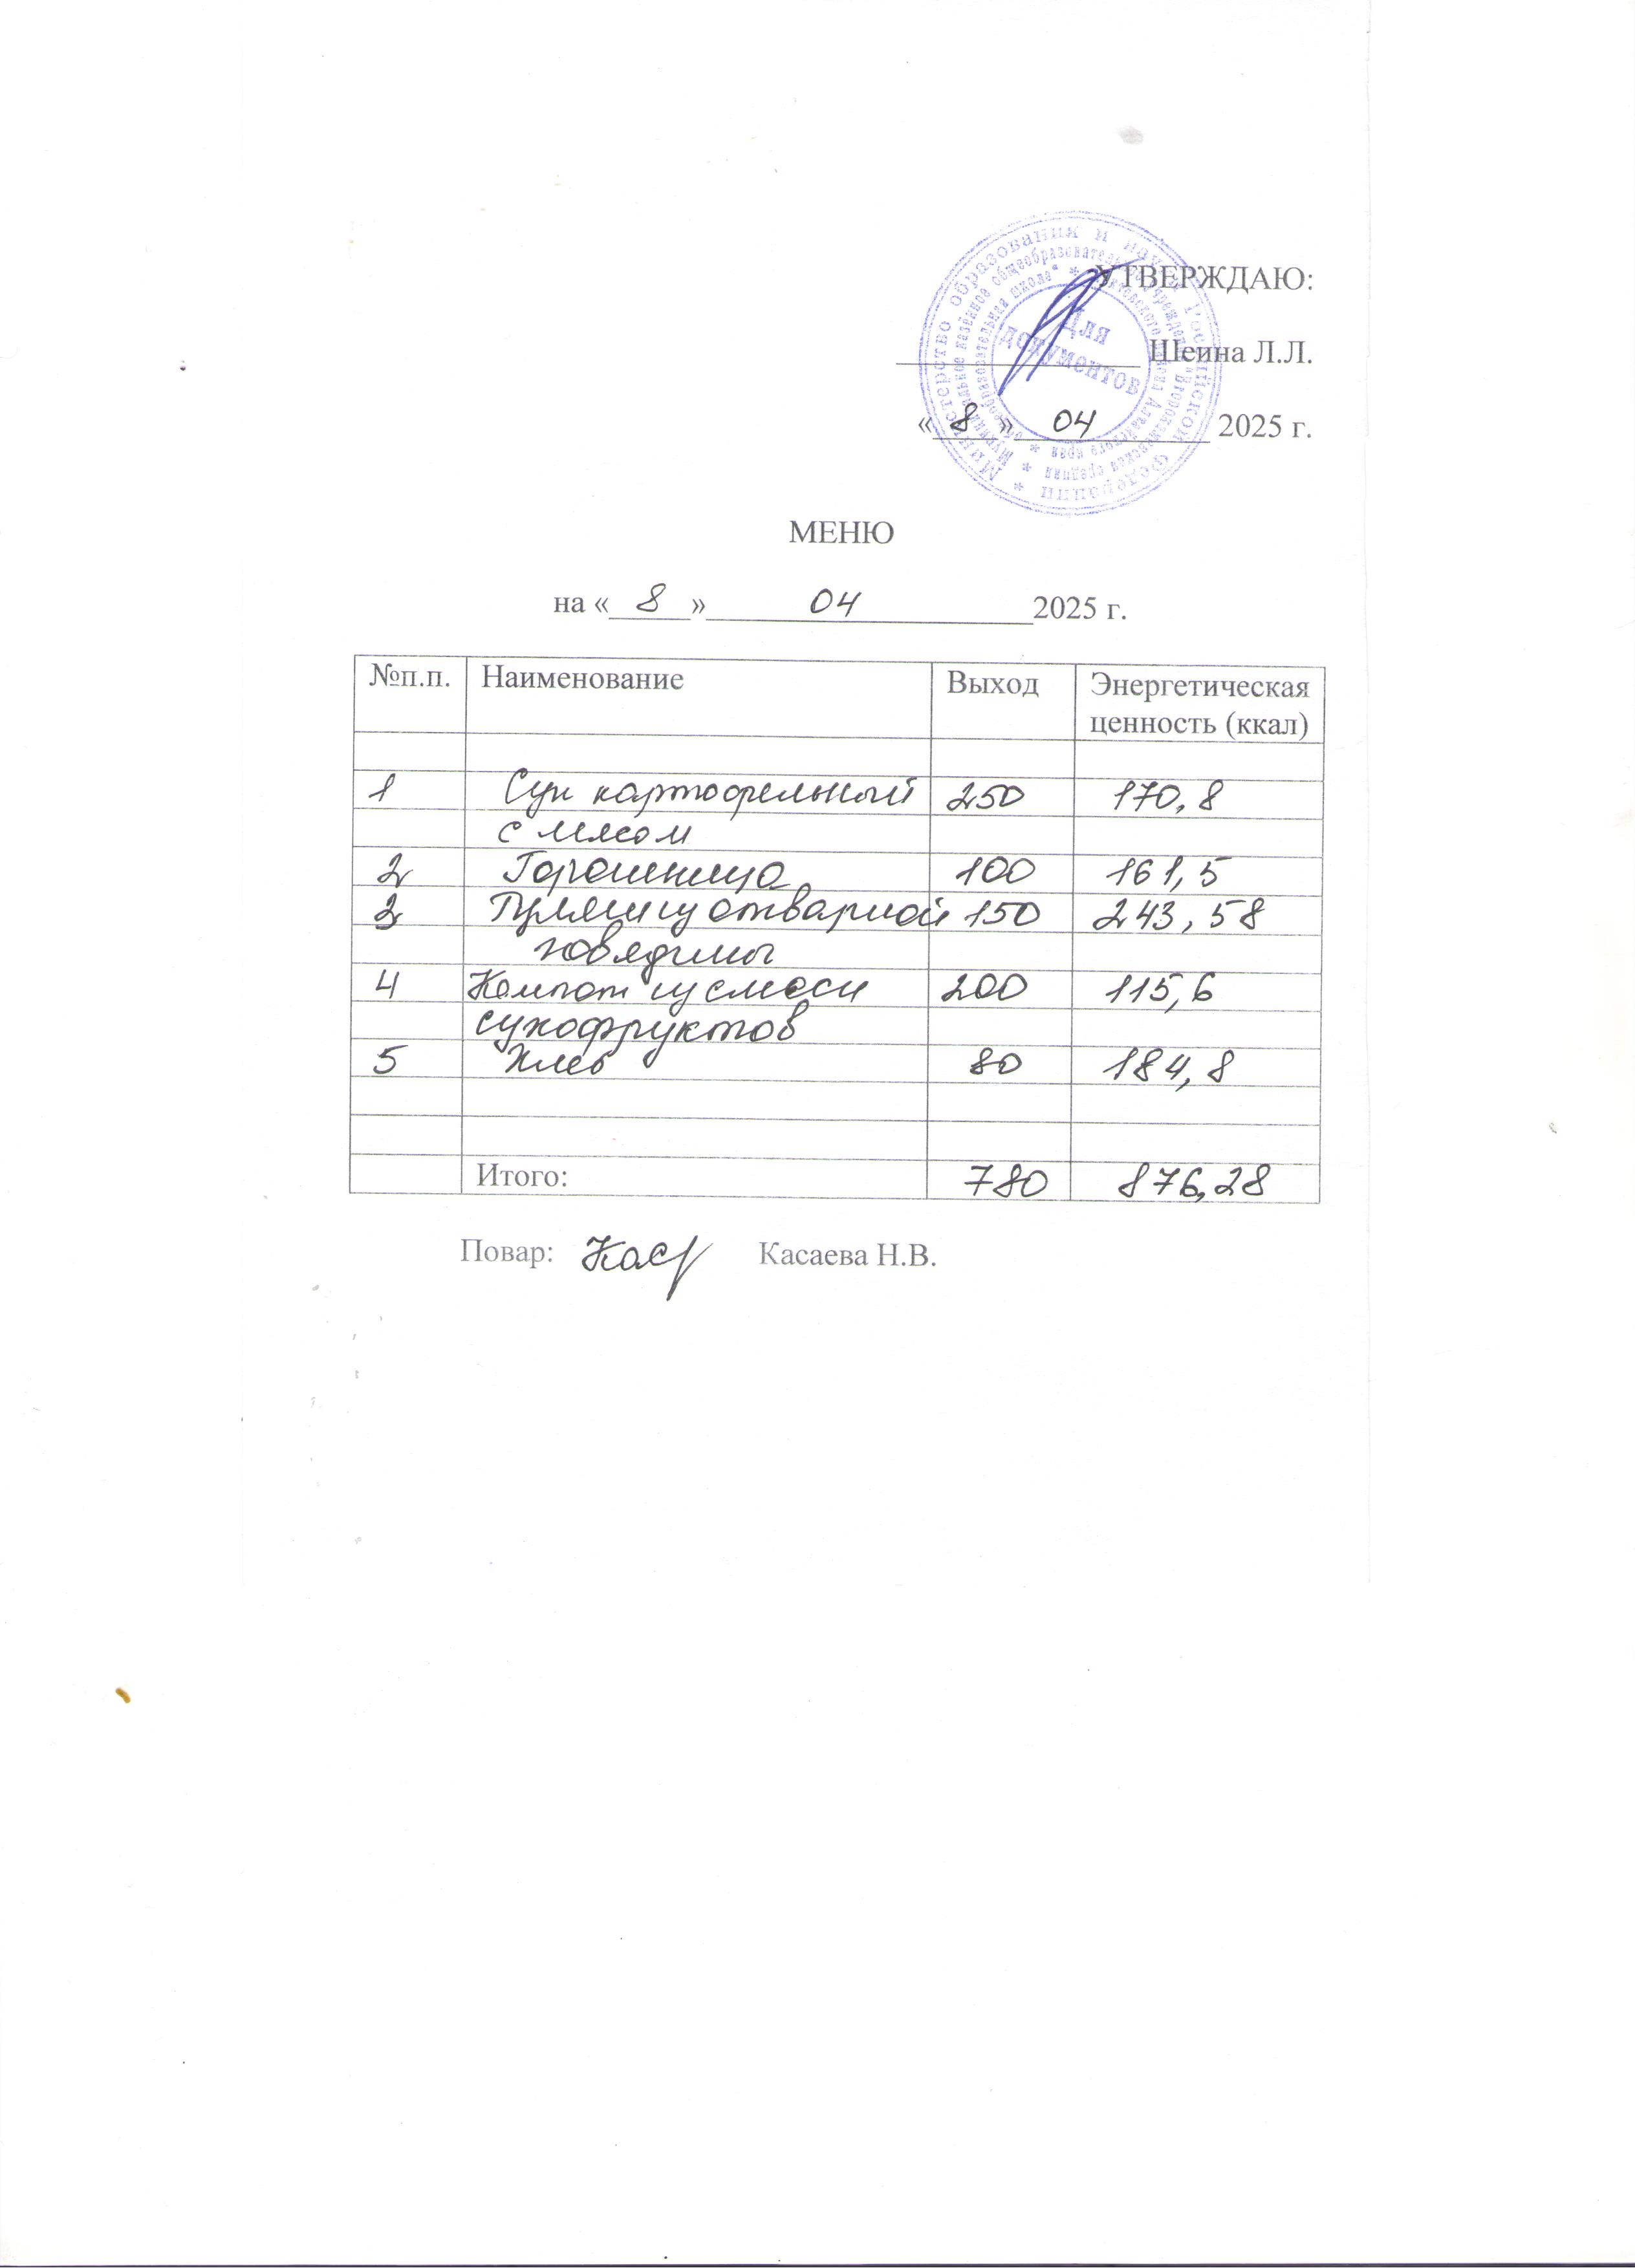 УТВЕРЖДАЮ:
Шеина Л.Л.
« 8 » 04 2025 г.
Министерство образования и науки Российской Федерации
Для
документов
МЕНЮ
на « 8 » 04 2025 г.
№п.п. Наименование Выход Энергетическая
ценность (ккал)
1 Суп картофельный 250 170,8
с мясом
2 Горошница 100 161,5
3 Гуляш из отварной 150 243,58
говядины
4 Компот из смеси 200 115,6
сухофруктов
5 Хлеб 80 184,8
Итого: 780 876,28
Повар: Касаева Н.В.